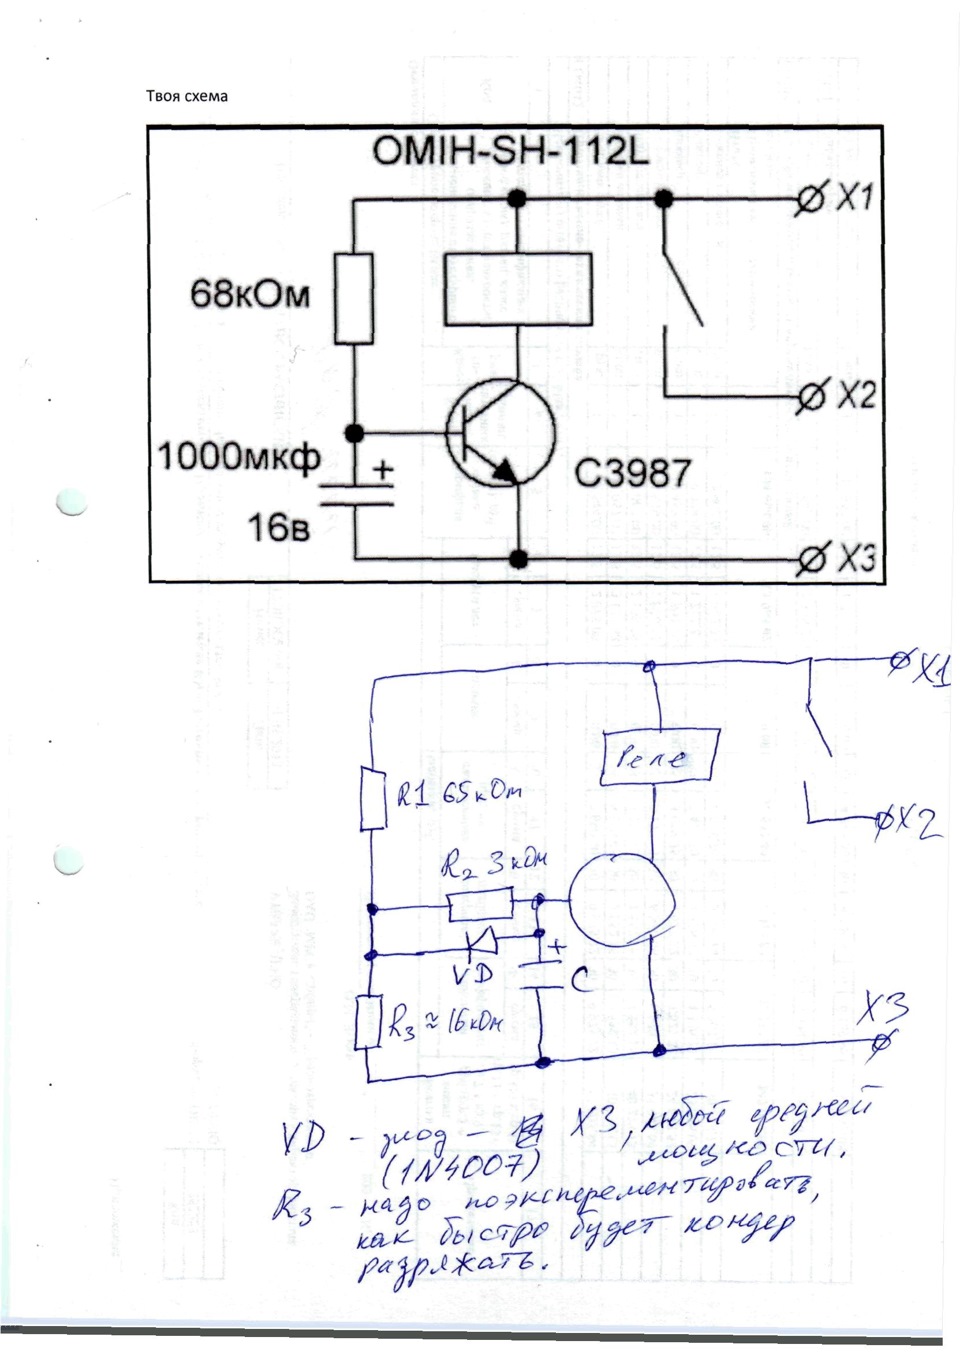 Твоя схема
OMIH-SH-112L
X1
68кОм
X2
1000мкф
+
C3987
16в
X3
X1
Реле
R1 65кОм
X2
R2 3кОм
+
VD
C
R3 ≈ 16кОм
X3
VD - диод - X3, любой средней
(1N4007) мощности.
R3 - надо поэксперементировать,
как быстро будет кондер
разряжать.